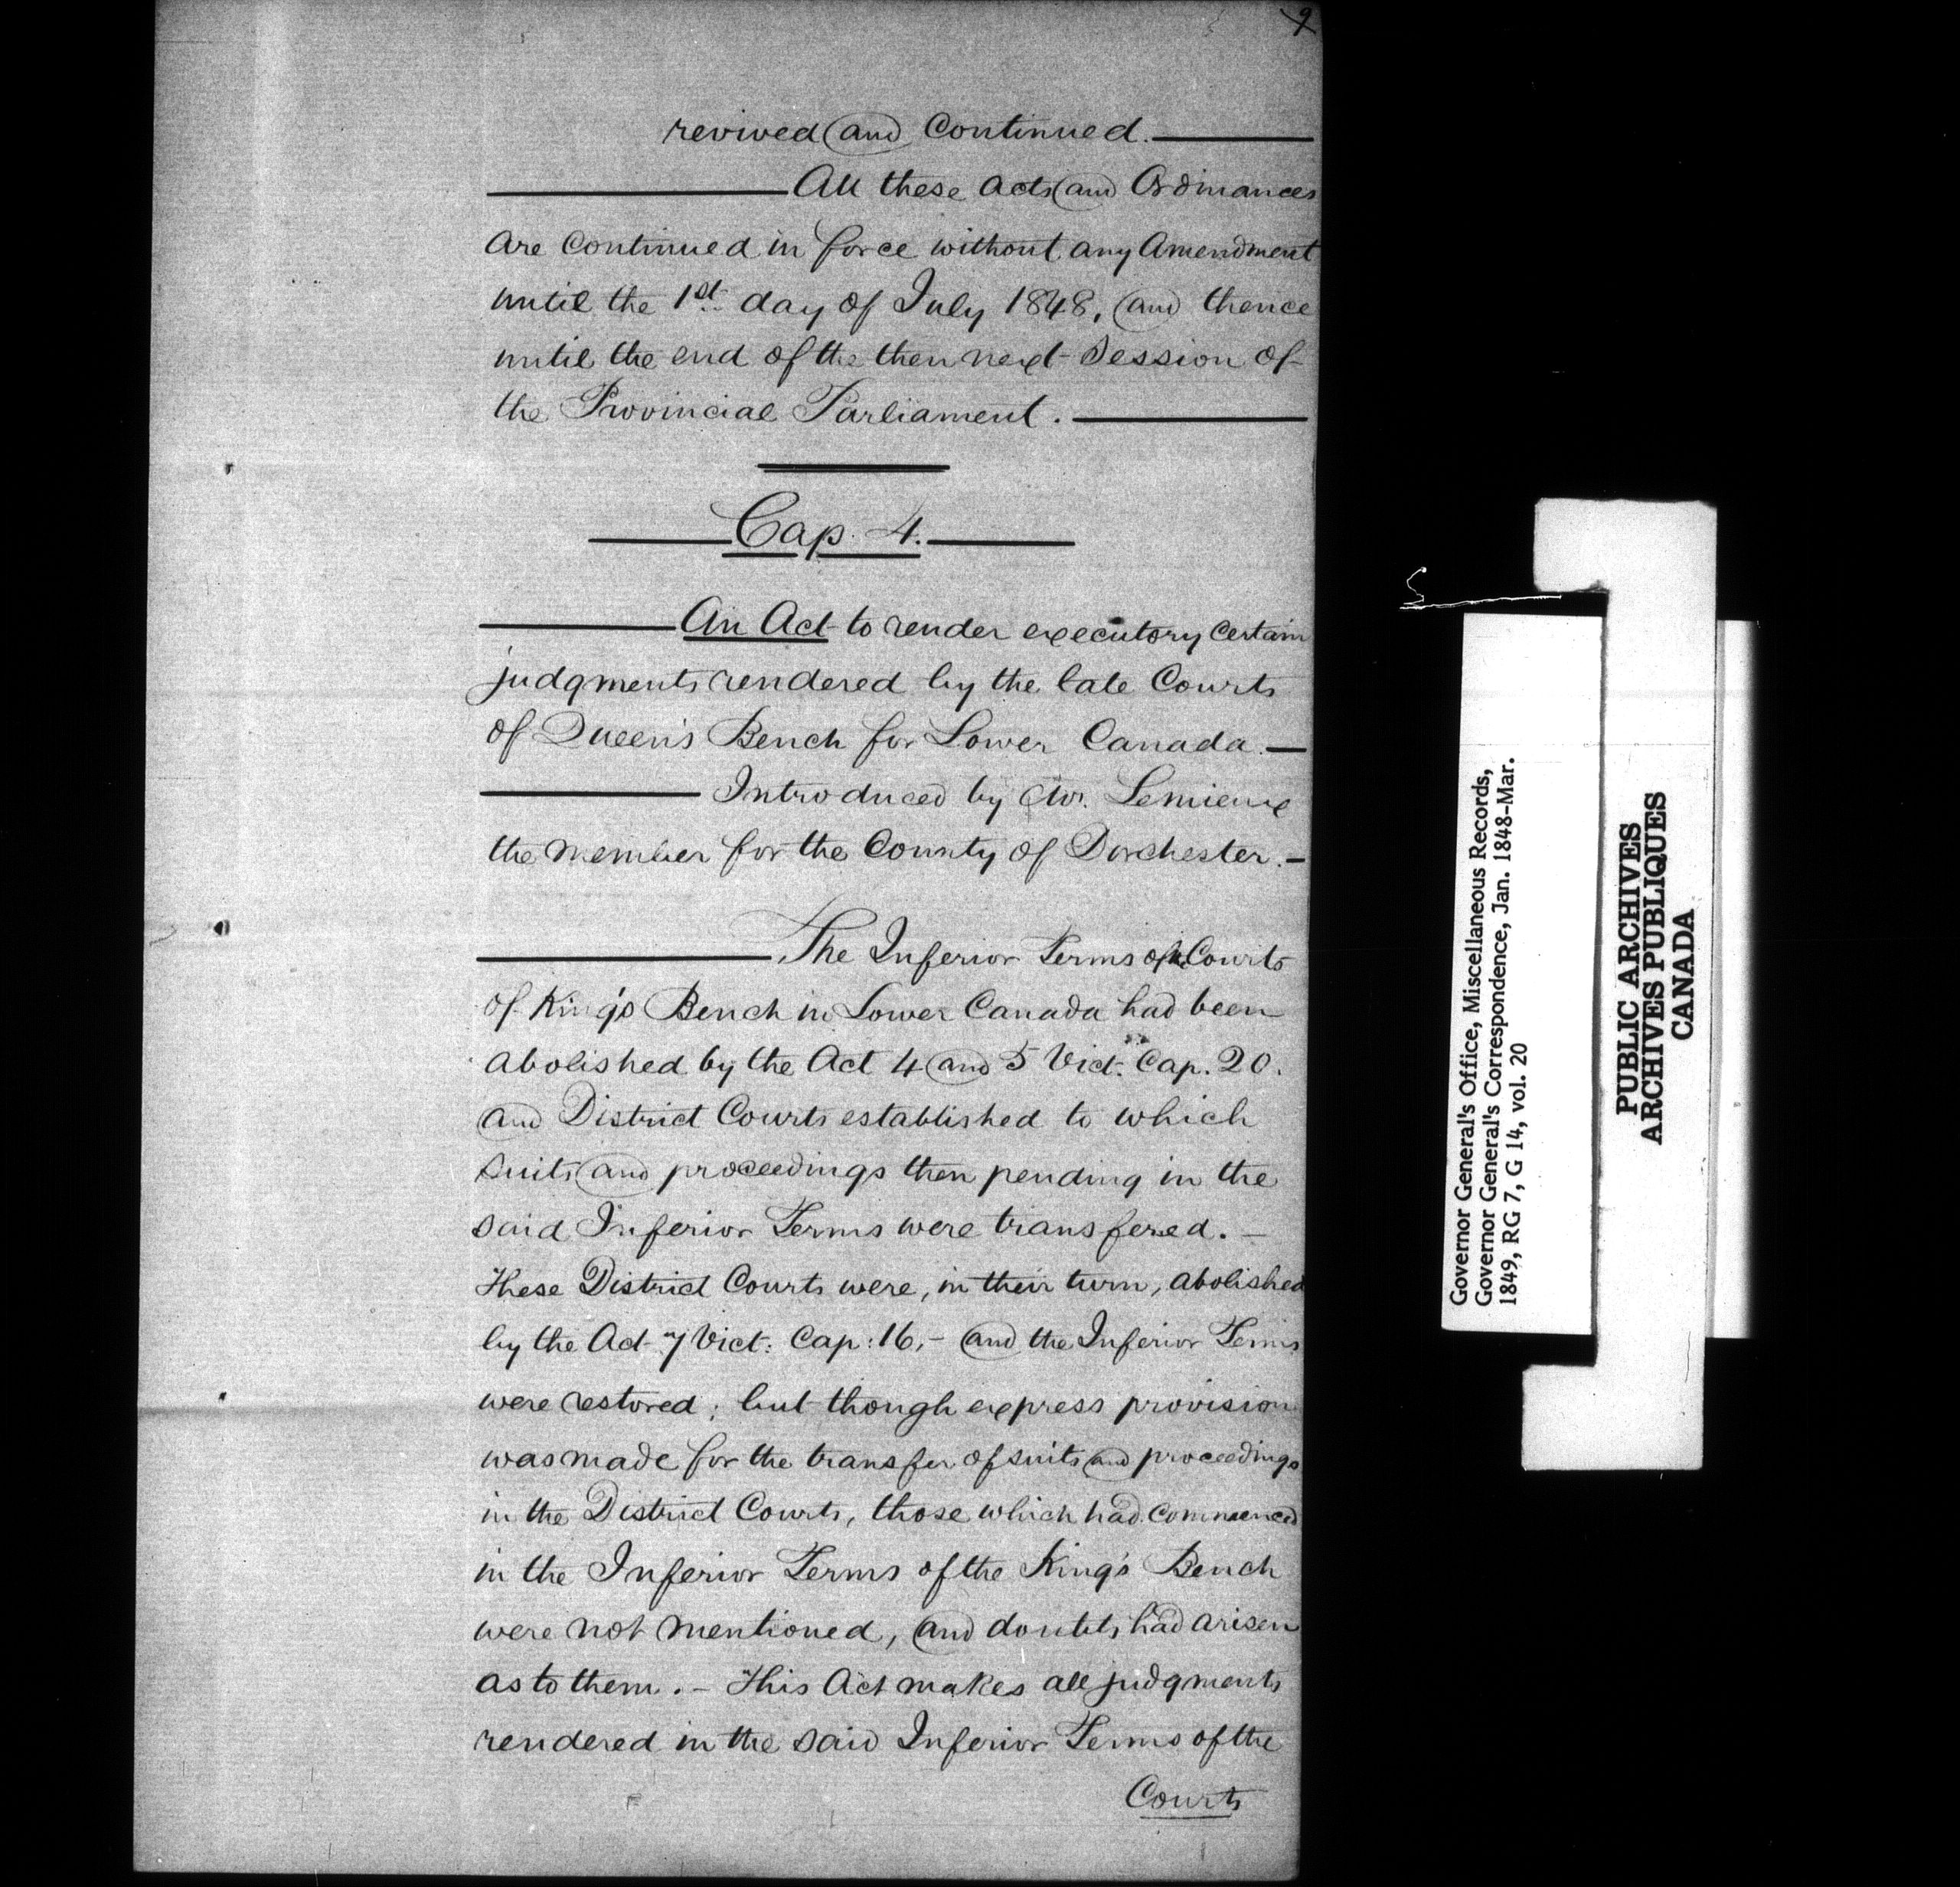 9
revived and Continued.
All these Acts and Ordinances
are Continued in force without any Amendment
until the 1st day of July 1848, and thence
until the end of the then next Session of
the Provincial Parliament.
Cap. 4.
An Act to render executory Certain
judgments rendered by the late Courts
of Queen's Bench for Lower Canada.
Introduced by Mr. Lemieux
the Member for the County of Dorchester.
The Inferior Terms of the Courts
of King's Bench in Lower Canada had been
abolished by the Act 4 and 5 Vict: Cap. 20.
and District Courts established to which
suits and proceedings then pending in the
said Inferior Terms were transfered.
These District Courts were, in their turn, abolished
by the Act 7 Vict: Cap: 16,- and the Inferior Terms
were restored; but though express provision
was made for the transfer of suits and proceedings
in the District Courts, those which had commenced
in the Inferior Terms of the King's Bench
were not mentioned, and doubts had arisen
as to them.- This Act makes all judgments
rendered in the said Inferior Terms of the
Courts
Governor General's Office, Miscellaneous Records,
Governor General's Correspondence, Jan. 1848-Mar.
1849, RG 7, G 14, vol. 20
PUBLIC ARCHIVES
ARCHIVES PUBLIQUES
CANADA